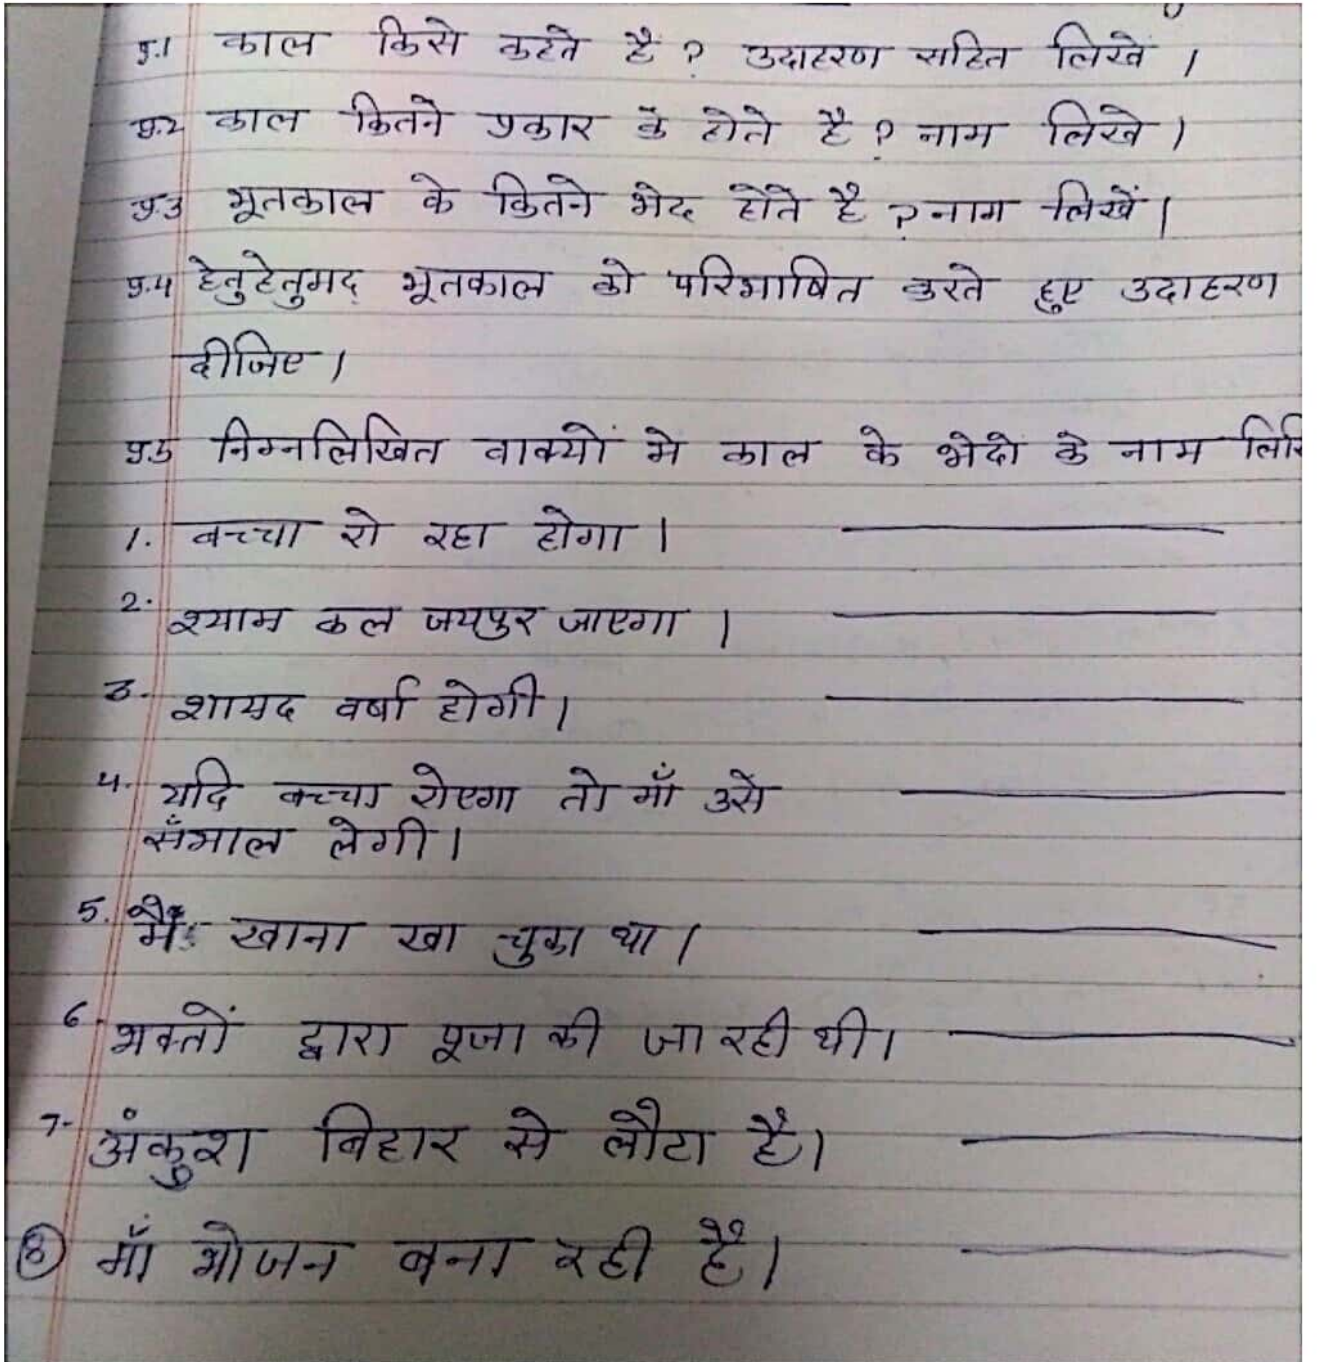 प्र.1 काल किसे कहते है ? उदाहरण सहित लिखें ।
प्र.2 काल कितने प्रकार के होते है ? नाम लिखे ।
प्र.3 भूतकाल के कितने भेद होते है ? नाम लिखें ।
प्र.4 हेतुहेतुमद् भूतकाल को परिभाषित करते हुए उदाहरण
दीजिए ।
प्र.5 निम्नलिखित वाक्यों मे काल के भेदो के नाम
1. बच्चा रो रहा होगा ।
2. श्याम कल जयपुर जाएगा ।
3. शायद वर्षा होगी ।
4. यदि बच्चा रोएगा तो माँ उसे
सँभाल लेगी ।
5. मैं खाना खा चुका था ।
6. भक्तों द्वारा पूजा की जा रही थी ।
7- अंकुश बिहार से लौटा है ।
8 माँ भोजन बना रही है ।